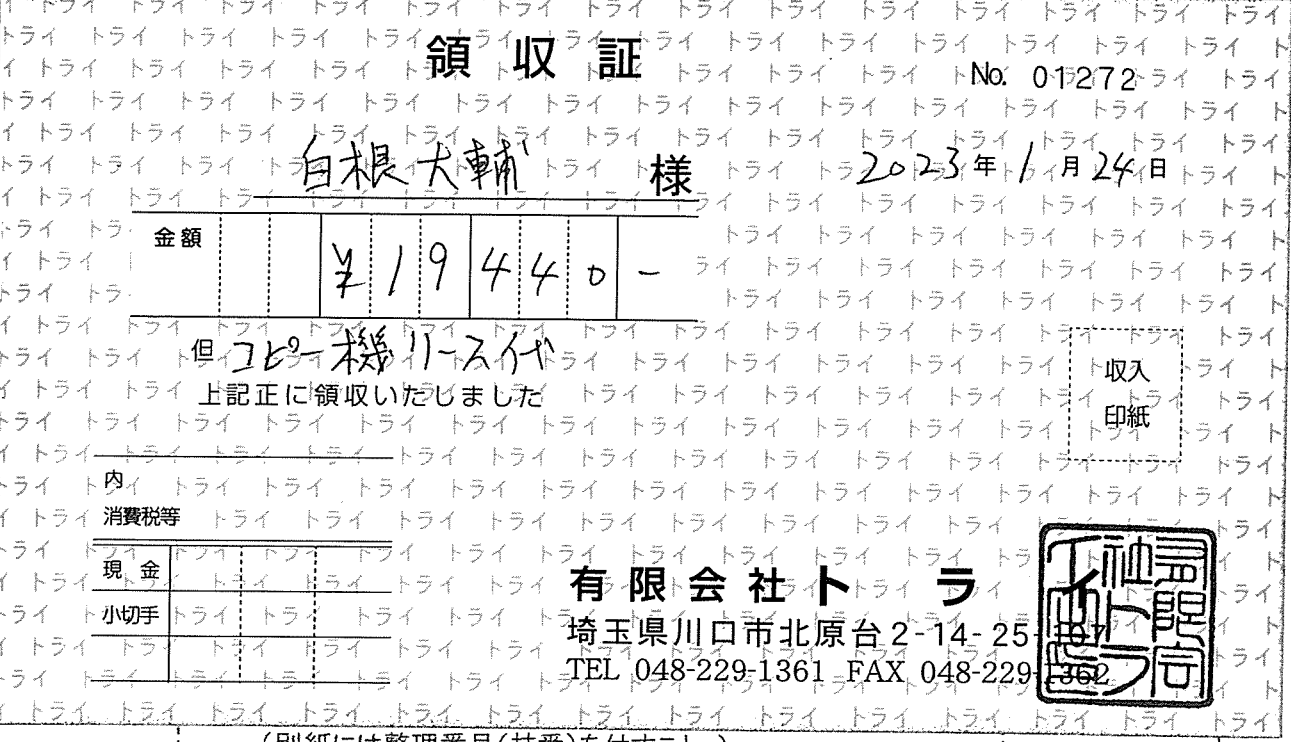 領収証
No. 01272
白根大輔 様
2023年1月24日
金額 ¥19440-
但 コピー機リース代
上記正に領収いたしました
収入
印紙
内
消費税等
現金
小切手
有限会社トライ
埼玉県川口市北原台2-14-25-107
TEL 048-229-1361 FAX 048-229-1362
(別紙には整理番号(枝番)を付すこと。)